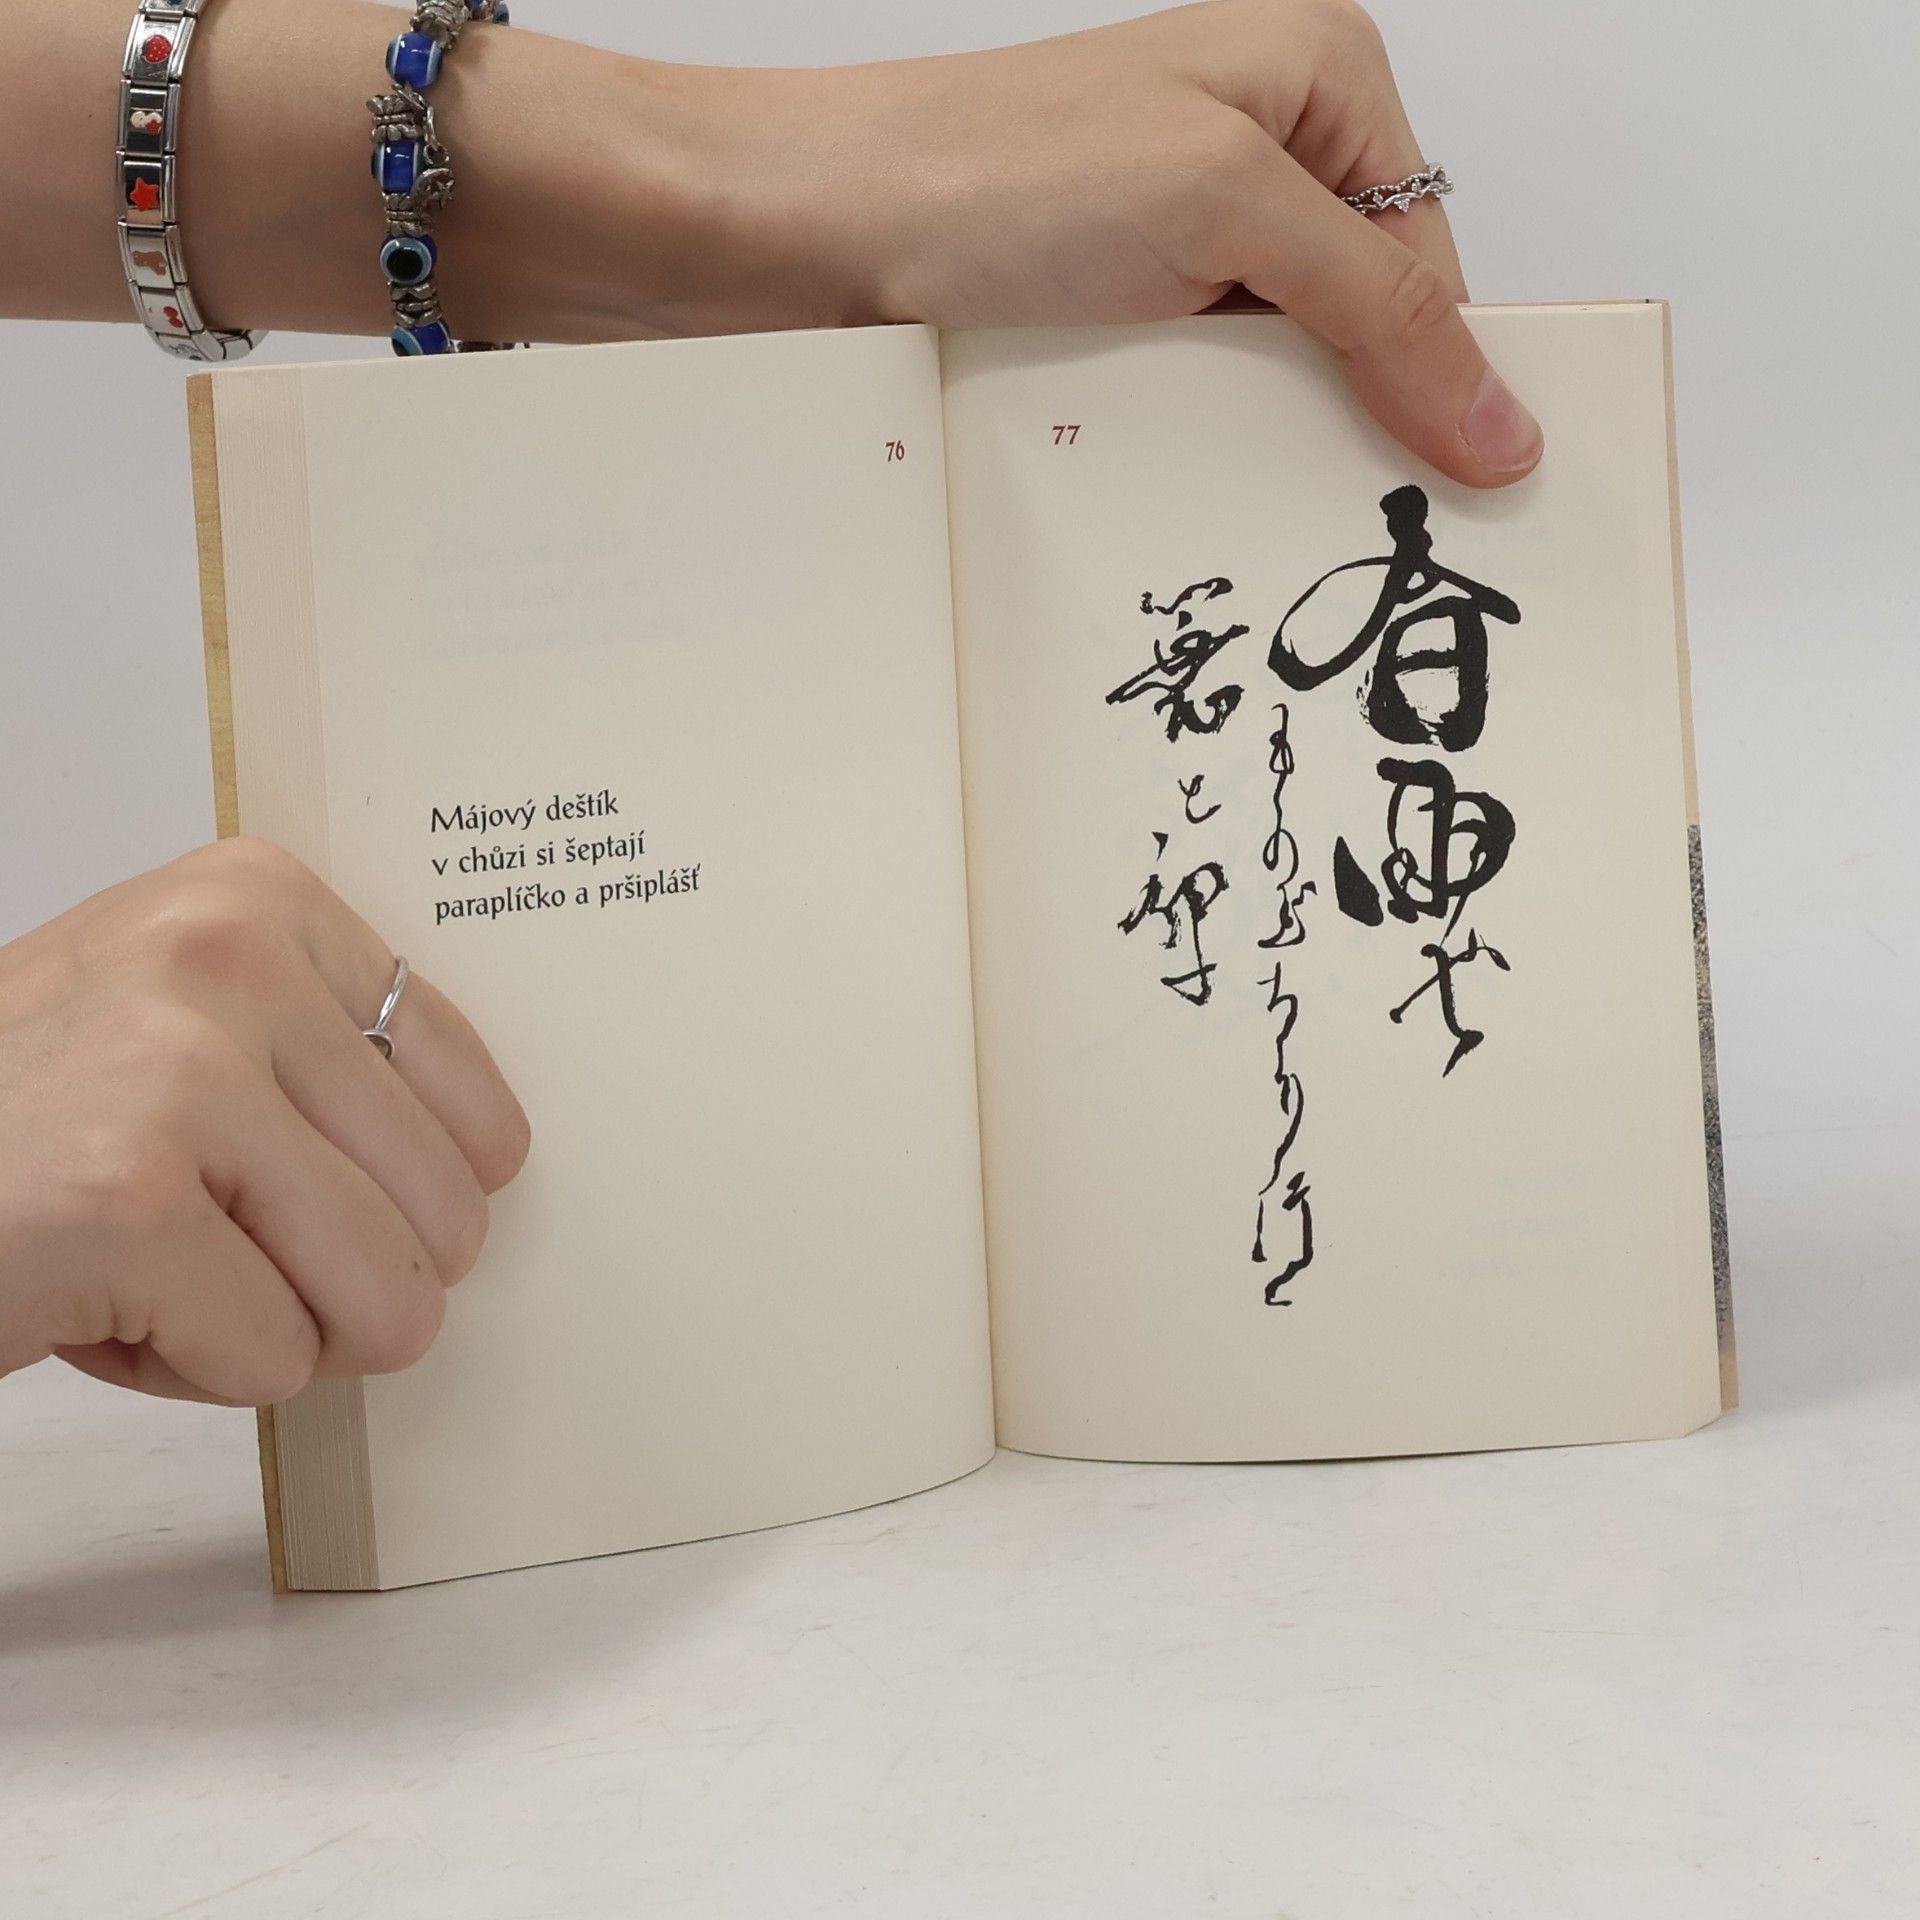 76
Májový deštík
v chůzi si šeptají
paraplíčko a pršiplášť
77
春雨や
ものがたり行く
蓑と傘